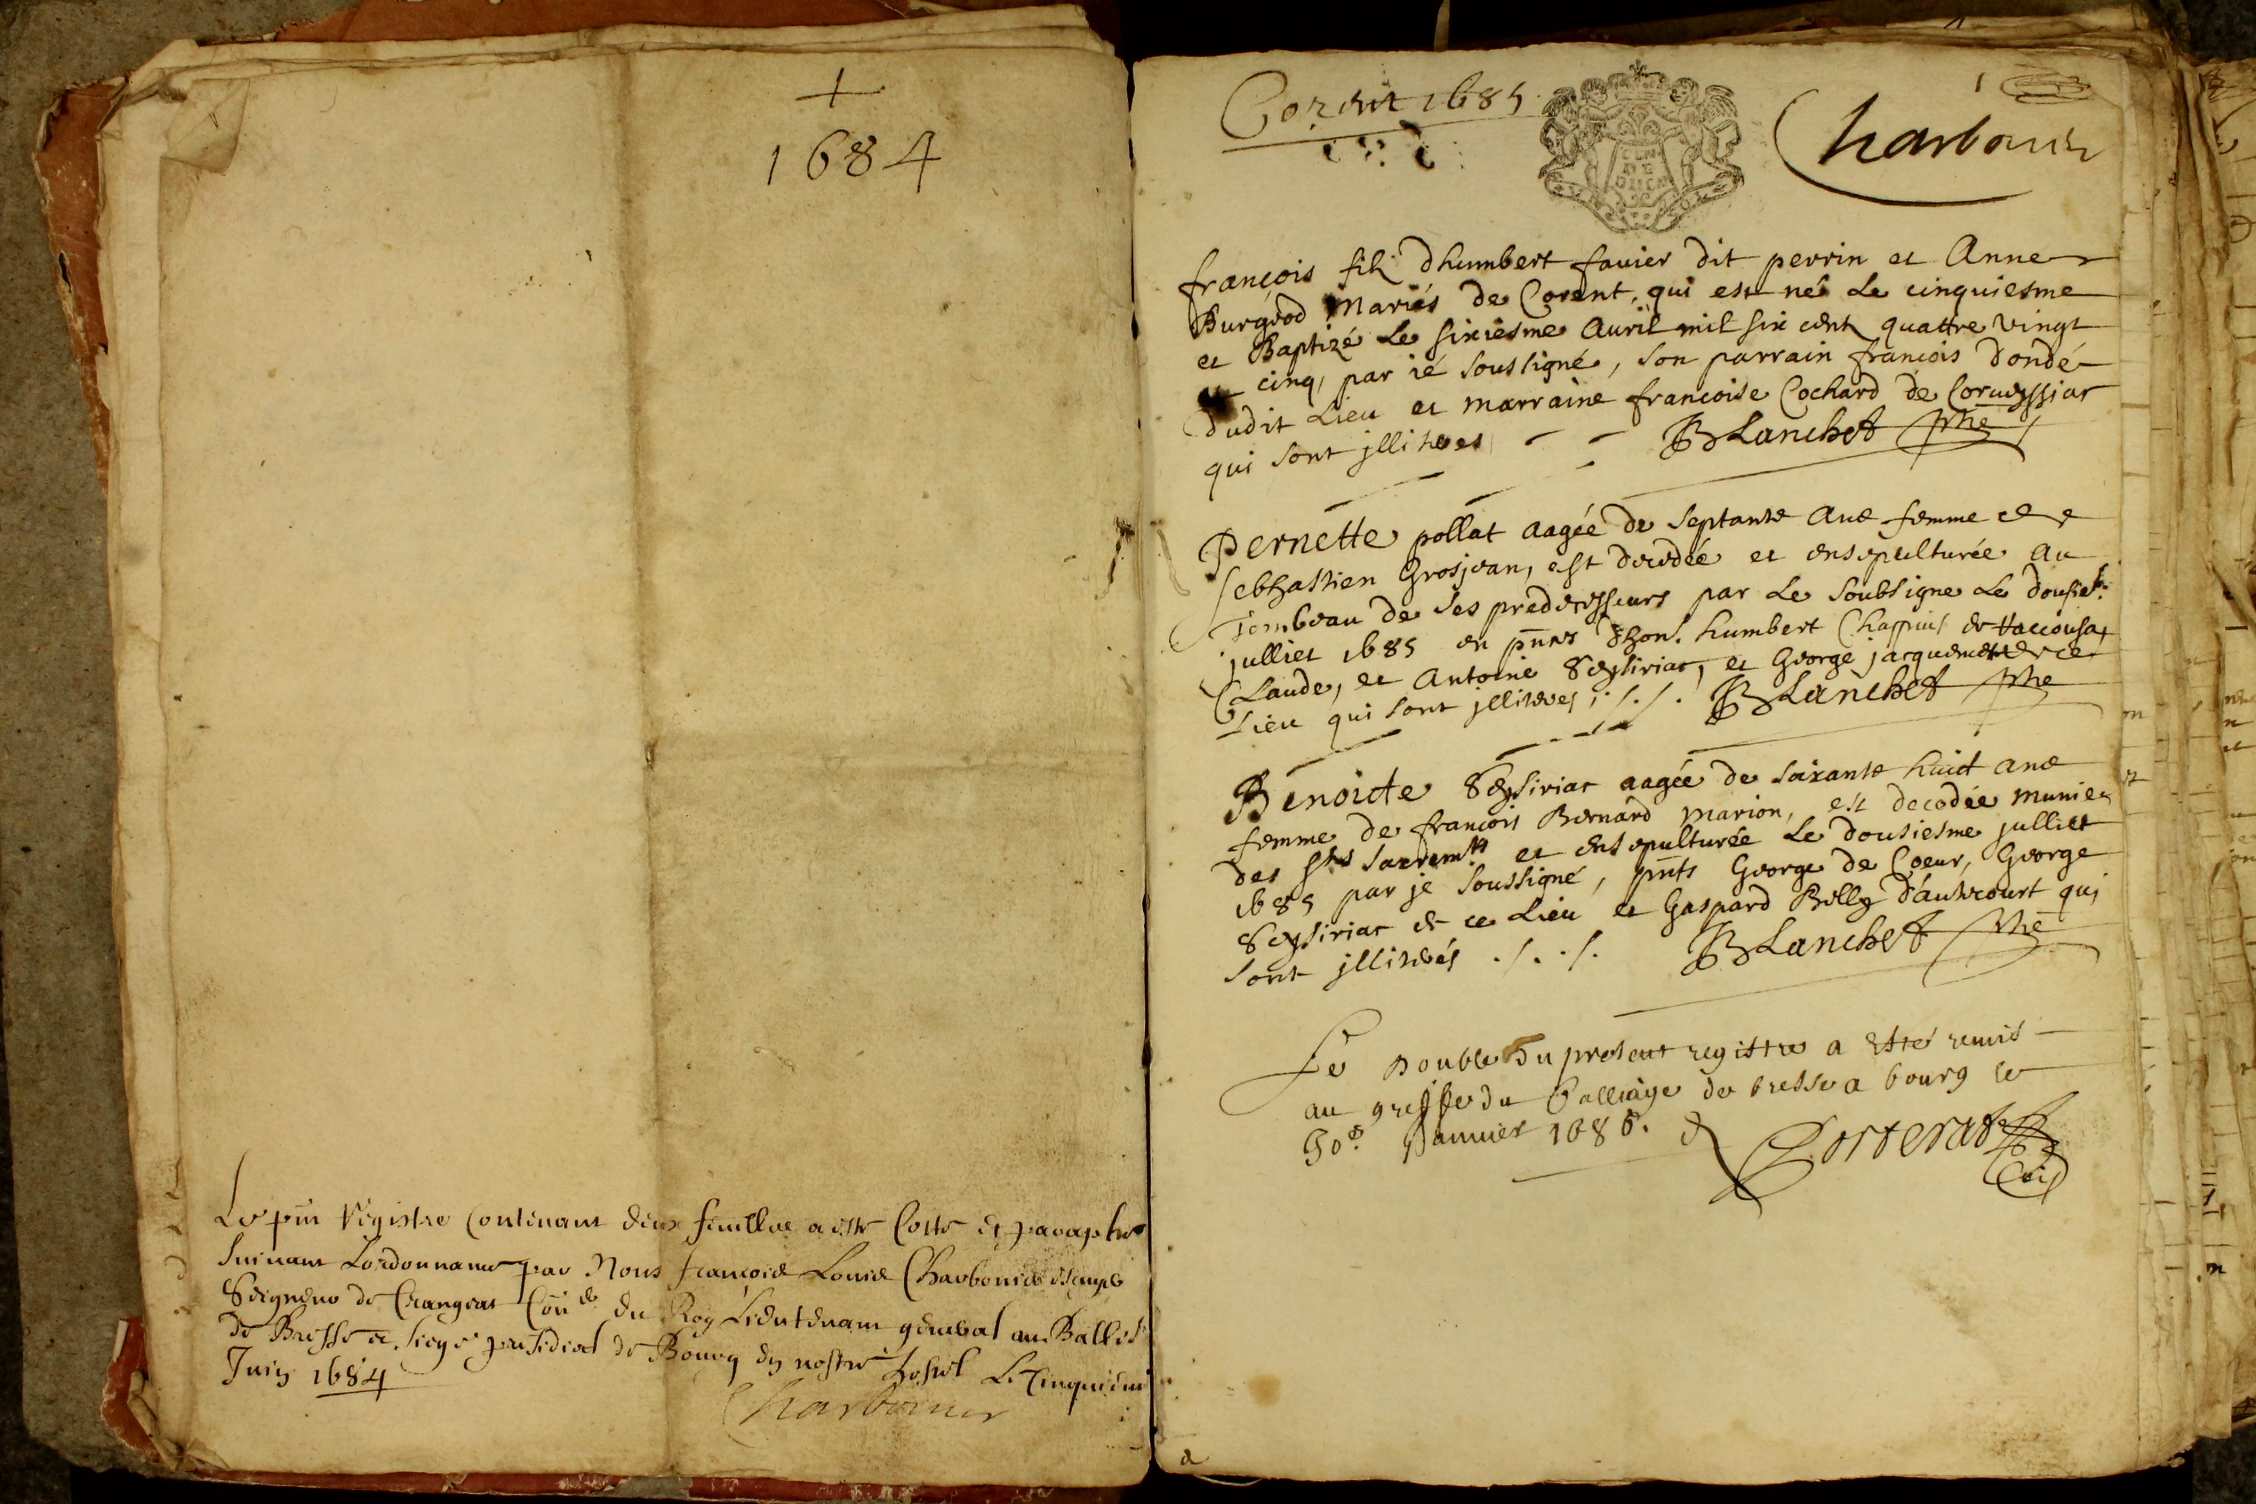 +
1684
Le pnt Registre Contenant deux feuilles a esté Cotté et paraphé
suivant Lordonnance par Nous françois Louis Charbonier escuyer
Seigneur de Crangeat Con.er du Roy Lieutenant general au Balliage
de Bresse et siege presidial de Bourg en nostre hostel Le Cinquieme
Juin 1684
Charbonier
Corent 1685
GEN
DE
1
Charbonier
françois fils dhumbert favier dit perrin et Anne
Burgeod Mariés de Corent, qui est né le cinquiesme
et Baptizé le sixiesme Avril mil six cent quattre vingt
et cinq, par ié soussigné, son parrain françois Dondé
dudit Lieu et marraine francoise Cochard de
qui sont jllitéres BLanchet ptre
Pernette pollat aagée de septante ans femme de
sebhastien Grosjean, est decedée et ensepulturée au
Tombeau de ses predecesseurs par le soubsigne le
julliet 1685 en pnce dhon. humbert Chappuis de
Claude, et Antoine Seysiriat, et George jacquemet de ce
Lieu qui sont jllitéres ./././. BLanchet ptre
Benoicte Seysiriat aagée de soixante huict ans
femme de françois Bernard Marion, est decedée munie
des sts sacremts et ensepulturée le dousiesme julliet
1685 par je soussigné, pnts George de Coeur, George
Seysiriat de ce Lieu et Gaspard Billy qui
sont jllitérés ./../. BLanchet ptre
Le double du present registre a esté remis
au greffe du balliage de bresse a bourg le
30e Januier 1686.